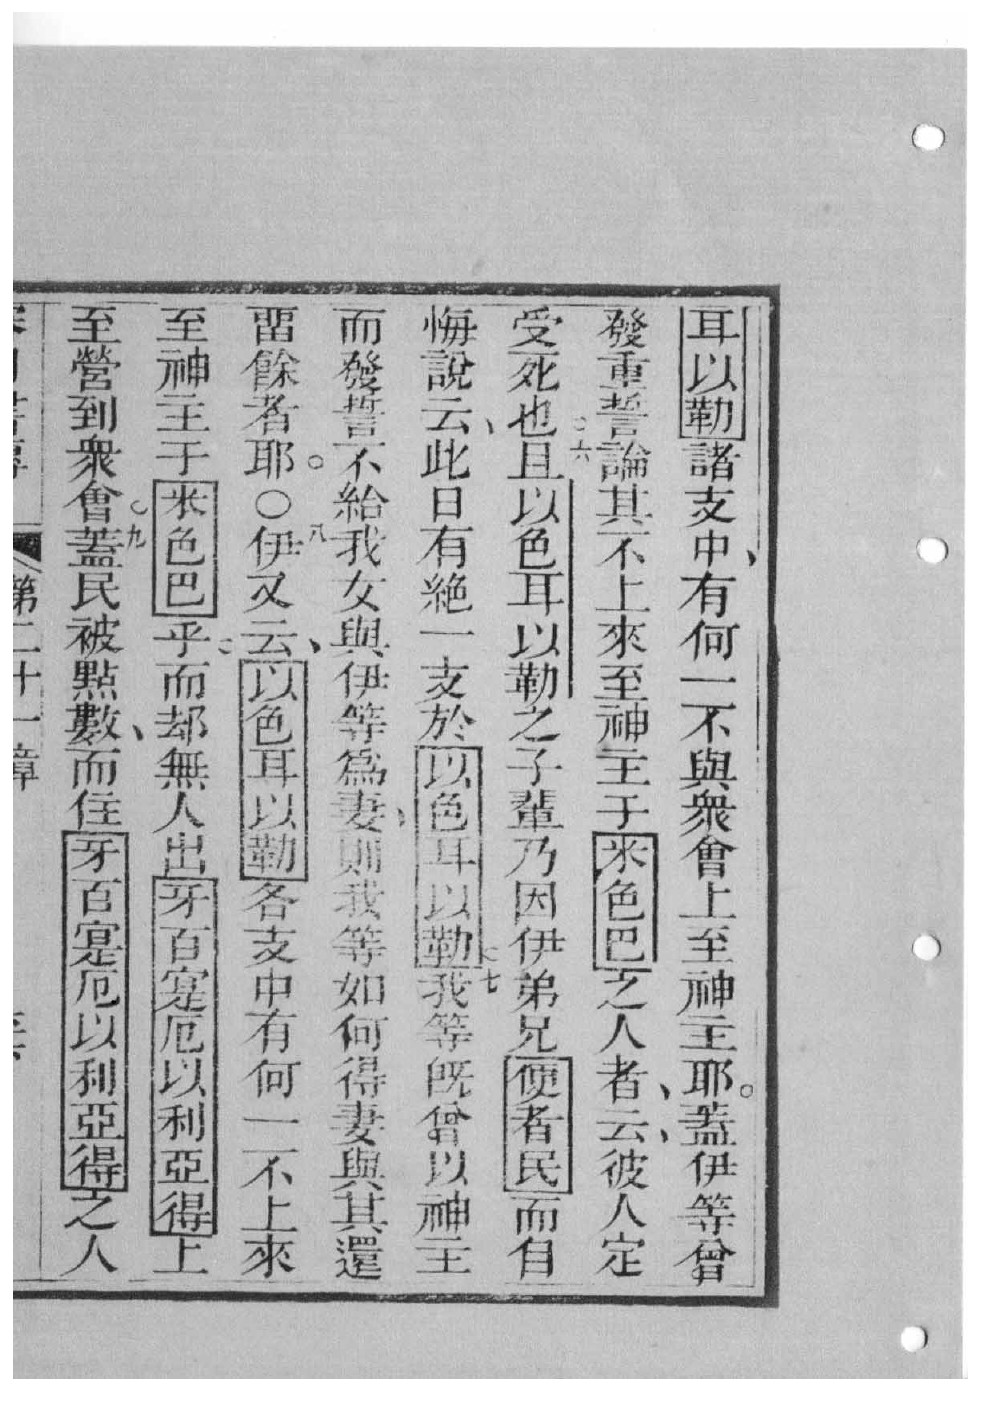 耳以勒諸支中、有何一不與衆會上至神主耶。蓋伊等曾
發重誓論其不上來至神主于米色巴之人者、云、彼人定
受死也○六且以色耳以勒之子輩乃因伊弟兄便者民而自
悔說云、此日有絕一支於以色耳以勒○七我等旣曾以神主
而發誓不給我女與伊等爲妻、則我等如何得妻與其還
畱餘者耶。○八伊又云、以色耳以勒各支中有何一不上來
至神主于米色巴乎○而却無人出牙百寔厄以利亞得上
至營到衆會○九蓋民被點數、而住牙百寔厄以利亞得之人
第二十一章